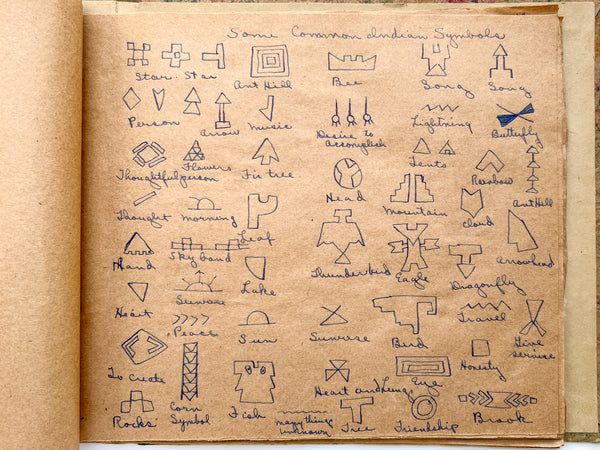 Some Common Indian Symbols
Star. Star Ant Hill Bee Song Song
Person Arrow Music Desire to Accomplish Lightning Butterfly
Thoughtful person Flowers Fir tree Head Tents Rainbow Ant Hill
Thought Morning Leaf Mountain Cloud Arrowhead
Hand Sky band Lake Thunderbird Eagle Dragonfly
Heart Sunrise Sun Sunrise Bird Travel Give service
Peace Honesty
To Create Corn Symbol Fish Heart and Lungs Eye
Rocks many things unknown Tree Friendship Brook